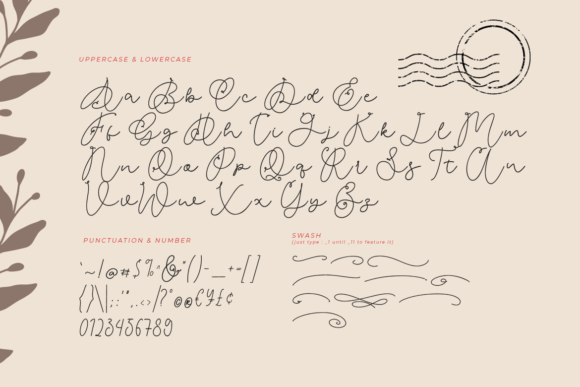 UPPERCASE & LOWERCASE
Aa Bb Cc Dd Ee
Ff Gg Hh Ii Jj Kk Ll Mm
Nn Oo Pp Qq Rr Ss Tt Uu
Vv Ww Xx Yy Zz
PUNCTUATION & NUMBER
`~!@#$%^&*()-_+=[]
{}\|;:'",.<>/?
0123456789
SWASH
(just type : _1 until _11 to feature it)